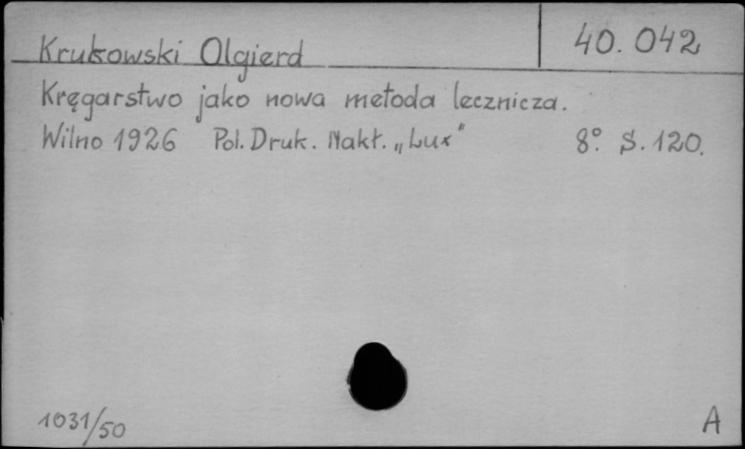 Krukowski Olgierd 40.042
Kręgarstwo jako nowa metoda lecznicza.
Wilno 1926 Pol. Druk. Nakł. „Lux" 8° S. 120.
1031/50 A